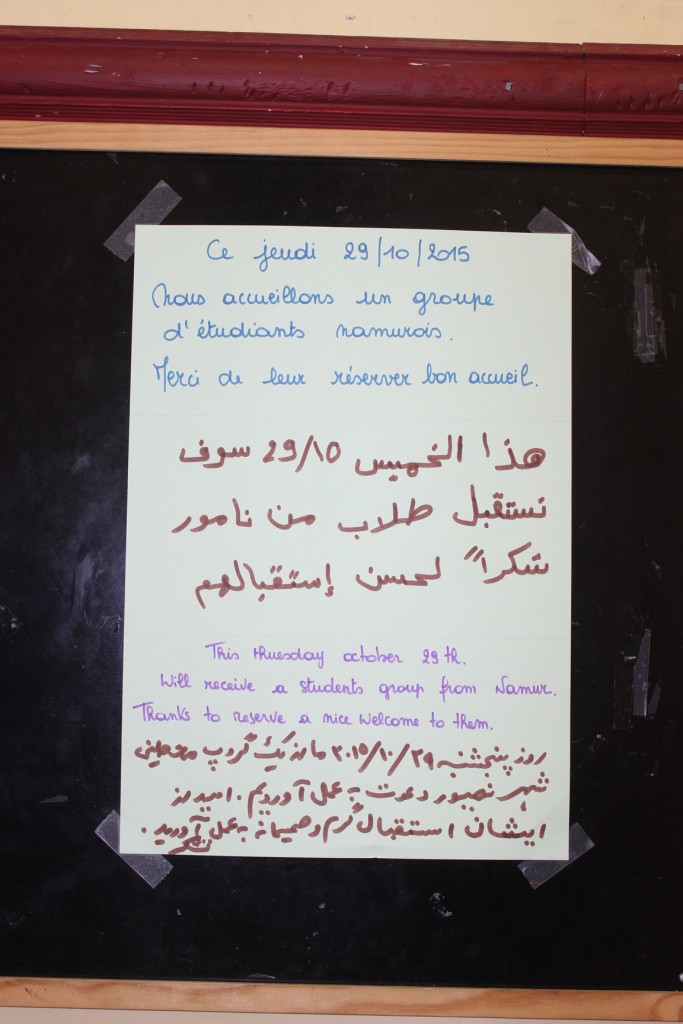 Ce jeudi 29/10/2015
Nous accueillons un groupe
d'étudiants namurois.
Merci de leur réserver bon accueil.
هذا الخميس 29/10 سوف
نستقبل طلاب من نامور
شكراً لحسن إستقبالهم
This thuesday october 29th.
Will receive a students group from Namur.
Thanks to reserve a nice welcome to them.
روز پنجشنبه ۲۰۱۵/۱۰/۲۹ ما از یک گروپ محصلین
شهر دعوت به عمل آوردیم. امید از
ایشان استقبال گرم و صمیمانه به عمل آورید.
تشکر